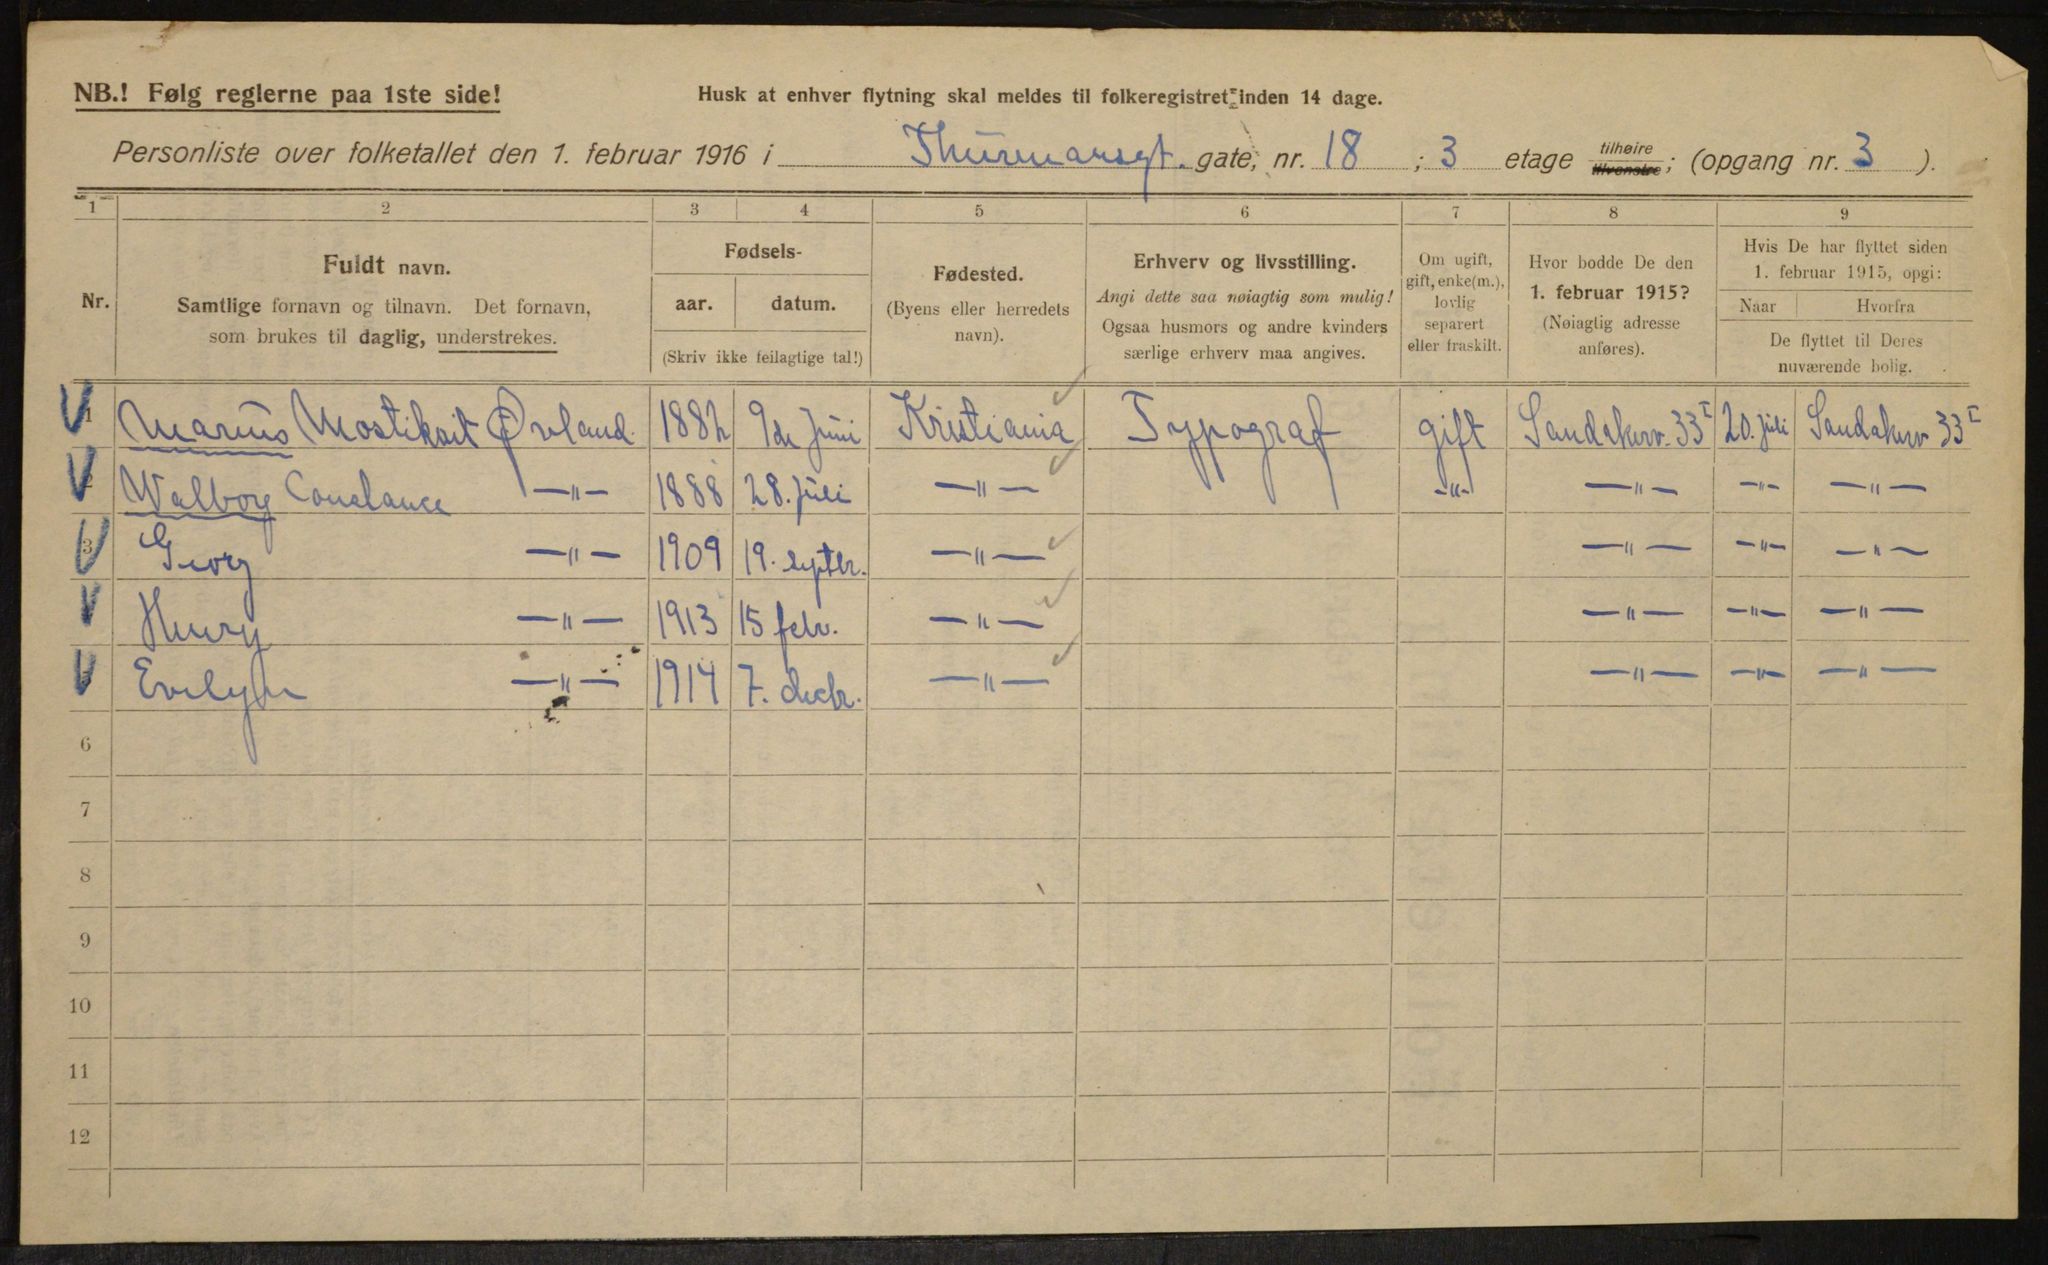 NB.! Følg reglerne paa 1ste side!
Husk at enhver flytning skal meldes til folkeregistret inden 14 dage.
Personliste over folketallet den 1. februar 1916 i Thurmansgt. gate, nr. 18 ; 3 etage tilhøire tilvenstre; (opgang nr. 3 ).
1 2 3 4 5 6 7 8 9
Nr.
Fuldt navn.
Samtlige fornavn og tilnavn. Det fornavn,
som brukes til daglig, understrekes.
Fødsels-
aar. datum.
(Skriv ikke feilagtige tal!)
Fødested.
(Byens eller herredets
navn).
Erhverv og livsstilling.
Angi dette saa nøiagtig som mulig!
Ogsaa husmors og andre kvinders
særlige erhverv maa angives.
Om ugift,
gift, enke(m.),
lovlig
separert
eller fraskilt.
Hvor bodde De den
1. februar 1915?
(Nøiagtig adresse
anføres).
Hvis De har flyttet siden
1. februar 1915, opgi:
Naar Hvorfra
De flyttet til Deres
nuværende bolig.
1 Marius Øvland. 1882 9de Juni Kristiania Typograf gift Sandakerv. 33 I 20. juli Sandakerv 33 I
2 Walborg Constance —"— 1888 28. juli —"— -"- —"— —"— —"—
3 Georg —"— 1909 19. septbr. —"— —"— —"— —"—
Henry —"— 1913 15 febr. —"— —"— —"— —"—
Evelyn —"— 1914 7. decbr. —"— —"— —"— —"—
6
7
8
9
10
11
12